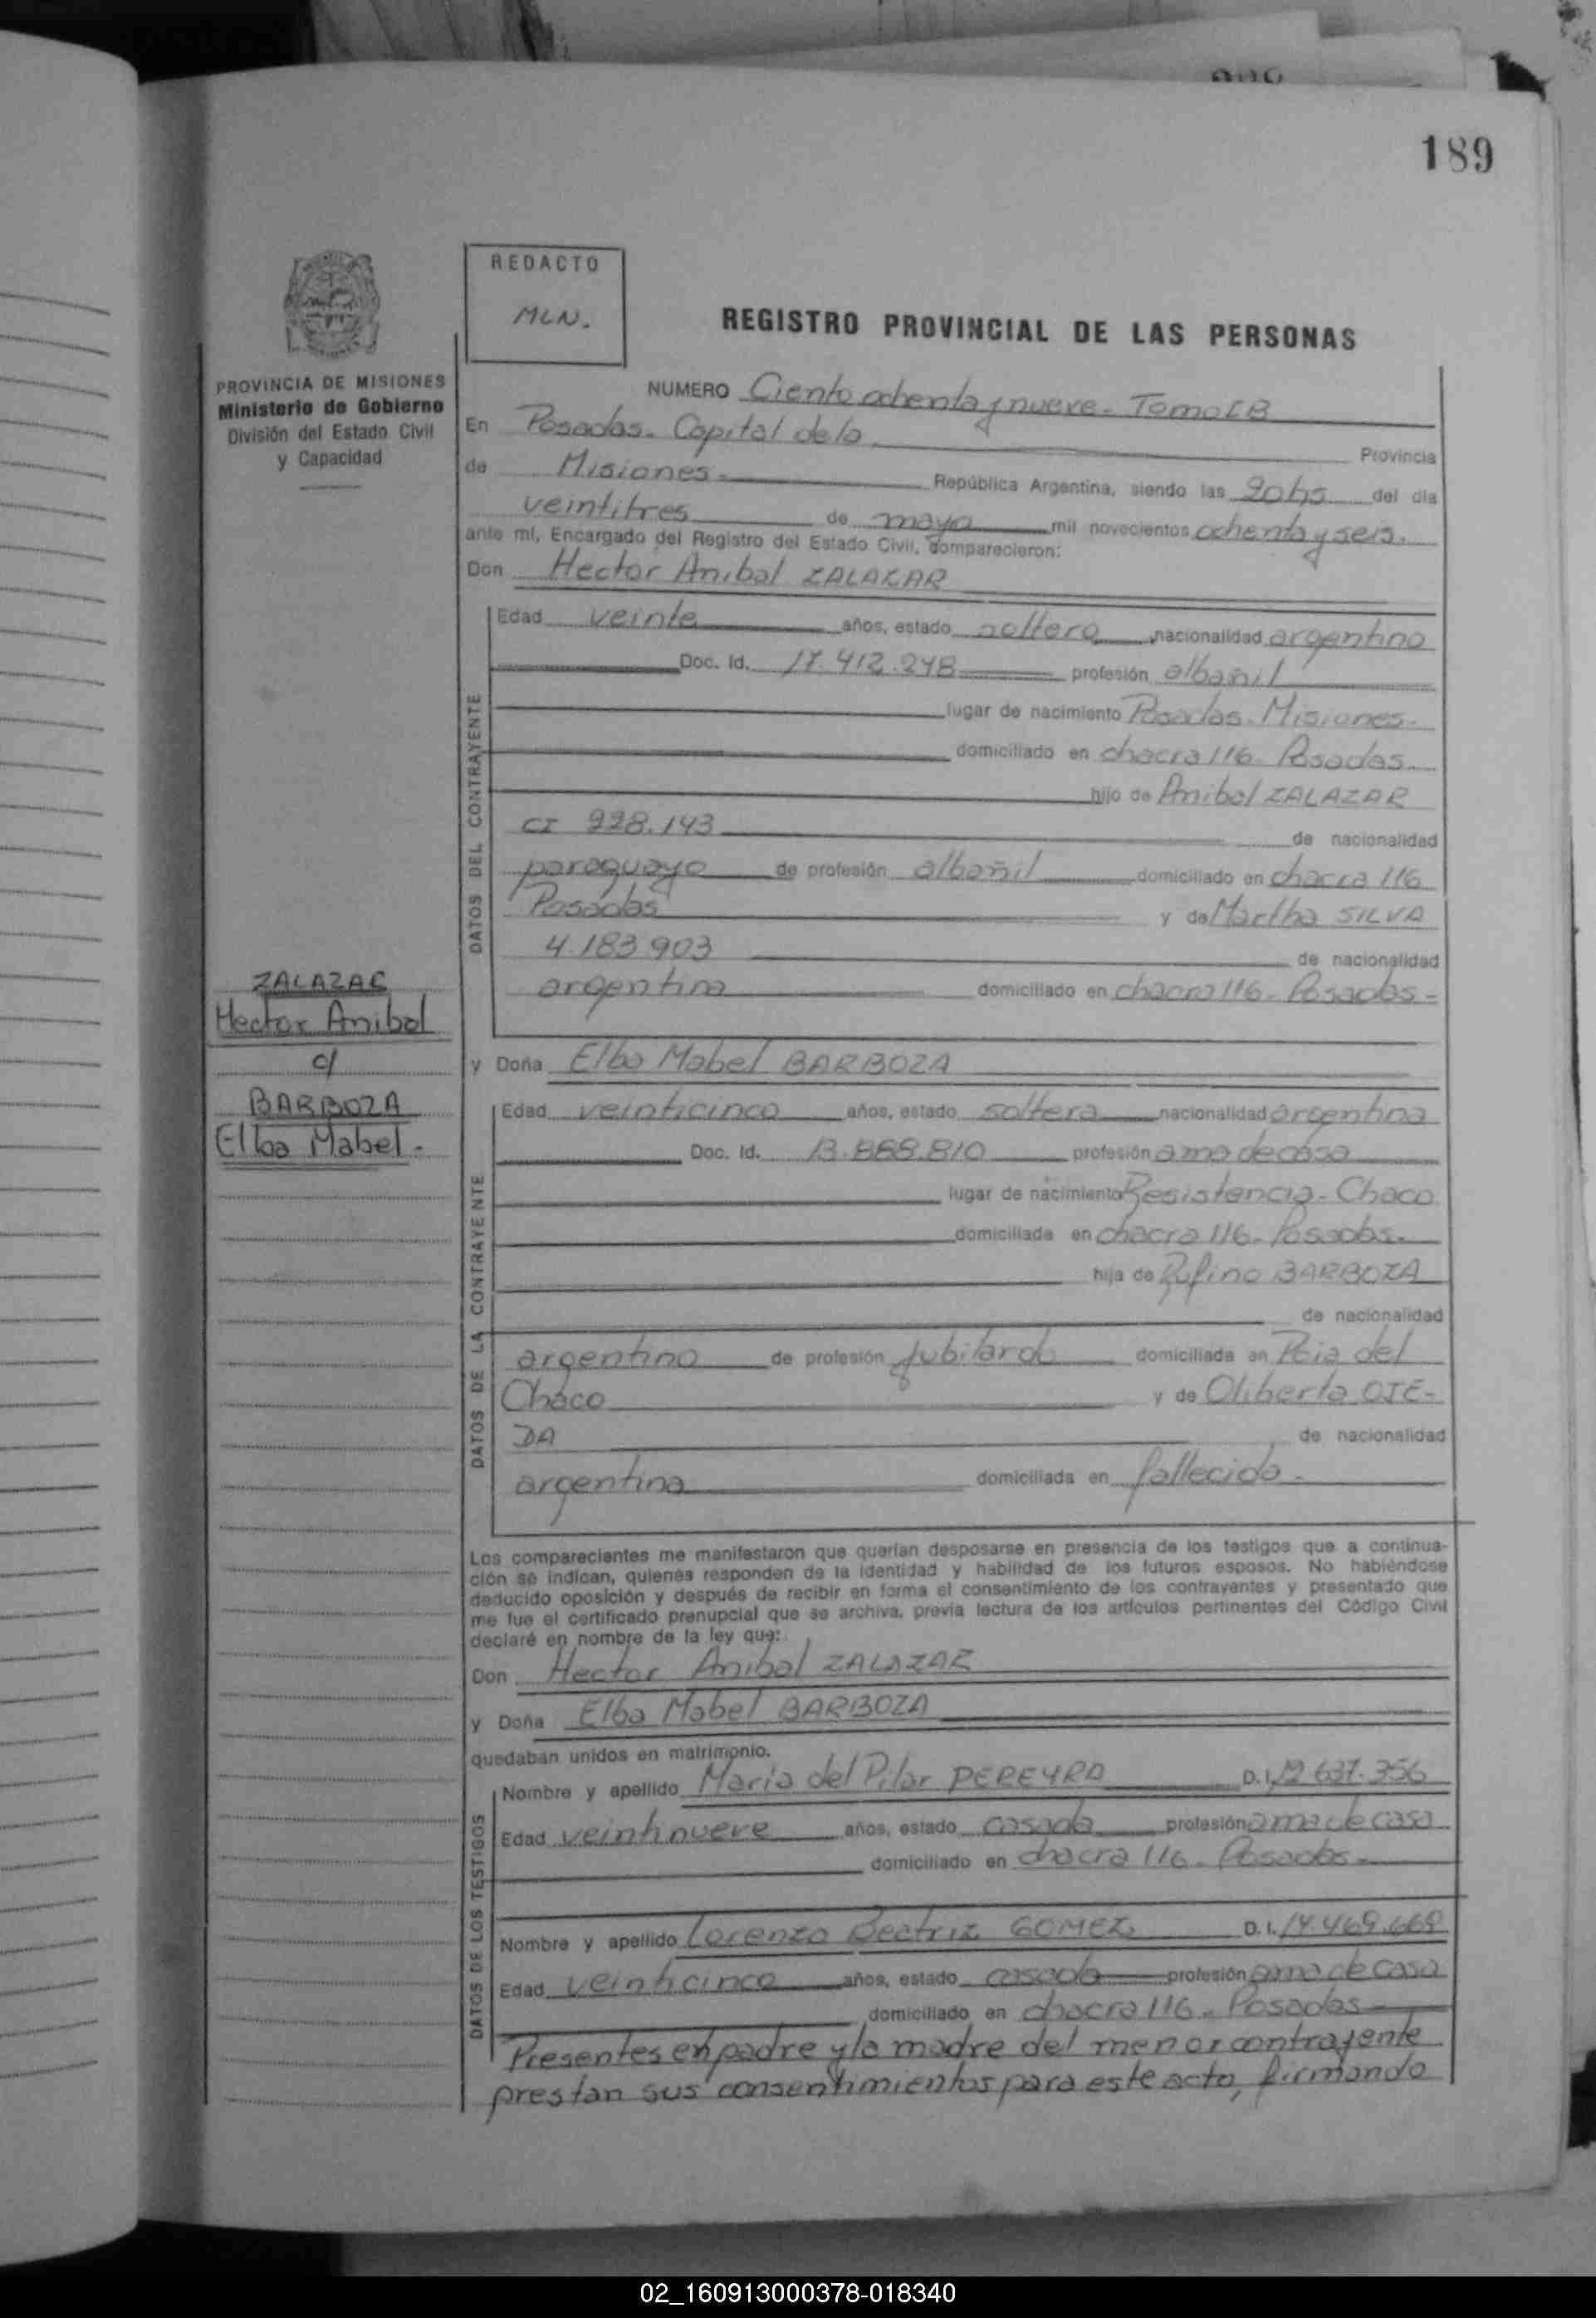 189
REDACTO
MLN.
REGISTRO PROVINCIAL DE LAS PERSONAS
PROVINCIA DE MISIONES
Ministerio de Gobierno
División del Estado Civil
y Capacidad
NUMERO Ciento ochenta y nueve - Tomo I B
En Posadas. Capital de la Provincia
de Misiones República Argentina, siendo las 20hs del día
veintitres de mayo mil novecientos ochenta y seis.
ante mí, Encargado del Registro del Estado Civil, comparecieron:
Don Hector Anibal ZALAZAR
DATOS DEL CONTRAYENTE
Edad veinte años, estado soltero nacionalidad argentino
Doc. Id. 17.412.248 profesión albañil
lugar de nacimiento Posadas. Misiones.
domiciliado en chacra 116. Posadas.
hijo de Anibal ZALAZAR
CI 228.143 de nacionalidad
paraguayo de profesión albañil domiciliado en chacra 116
Posadas y de Martha SILVA
4.183 903 de nacionalidad
argentina domiciliado en chacra 116 - Posadas -
ZALAZAR
Hector Anibal
c/
BARBOZA
Elba Mabel -
y Doña Elba Mabel BARBOZA
DATOS DE LA CONTRAYENTE
Edad veinticinco años, estado soltera nacionalidad argentina
Doc. Id. 13.888.810 profesión ama de casa
lugar de nacimiento Resistencia - Chaco
domiciliada en chacra 116 - Posadas.
hija de Rufino BARBOZA
de nacionalidad
argentino de profesión jubilardo domiciliada en Pcia del
Chaco y de Oliberta OJE-
DA de nacionalidad
argentina domiciliada en fallecida -
Los comparecientes me manifestaron que querían desposarse en presencia de los testigos que a continua-
ción se indican, quienes responden de la identidad y habilidad de los futuros esposos. No habiéndose
deducido oposición y después de recibir en forma el consentimiento de los contrayentes y presentado que
me fue el certificado prenupcial que se archiva, previa lectura de los artículos pertinentes del Código Civil
declaré en nombre de la ley que:
Don Hector Anibal ZALAZAR
y Doña Elba Mabel BARBOZA
quedaban unidos en matrimonio.
DATOS DE LOS TESTIGOS
Nombre y apellido Maria del Pilar PEREYRA D.I. 12 637.356
Edad veintinueve años, estado casada profesión ama de casa
domiciliado en chacra 116 - Posadas -
Nombre y apellido Lorenza Beatriz GOMEZ D.I. 14.469.669
Edad veinticinco años, estado casada profesión ama de casa
domiciliado en chacra 116 - Posadas
Presentes el padre y la madre del menor contrayente
prestan sus consentimientos para este acto, firmando
02_160913000378-018340